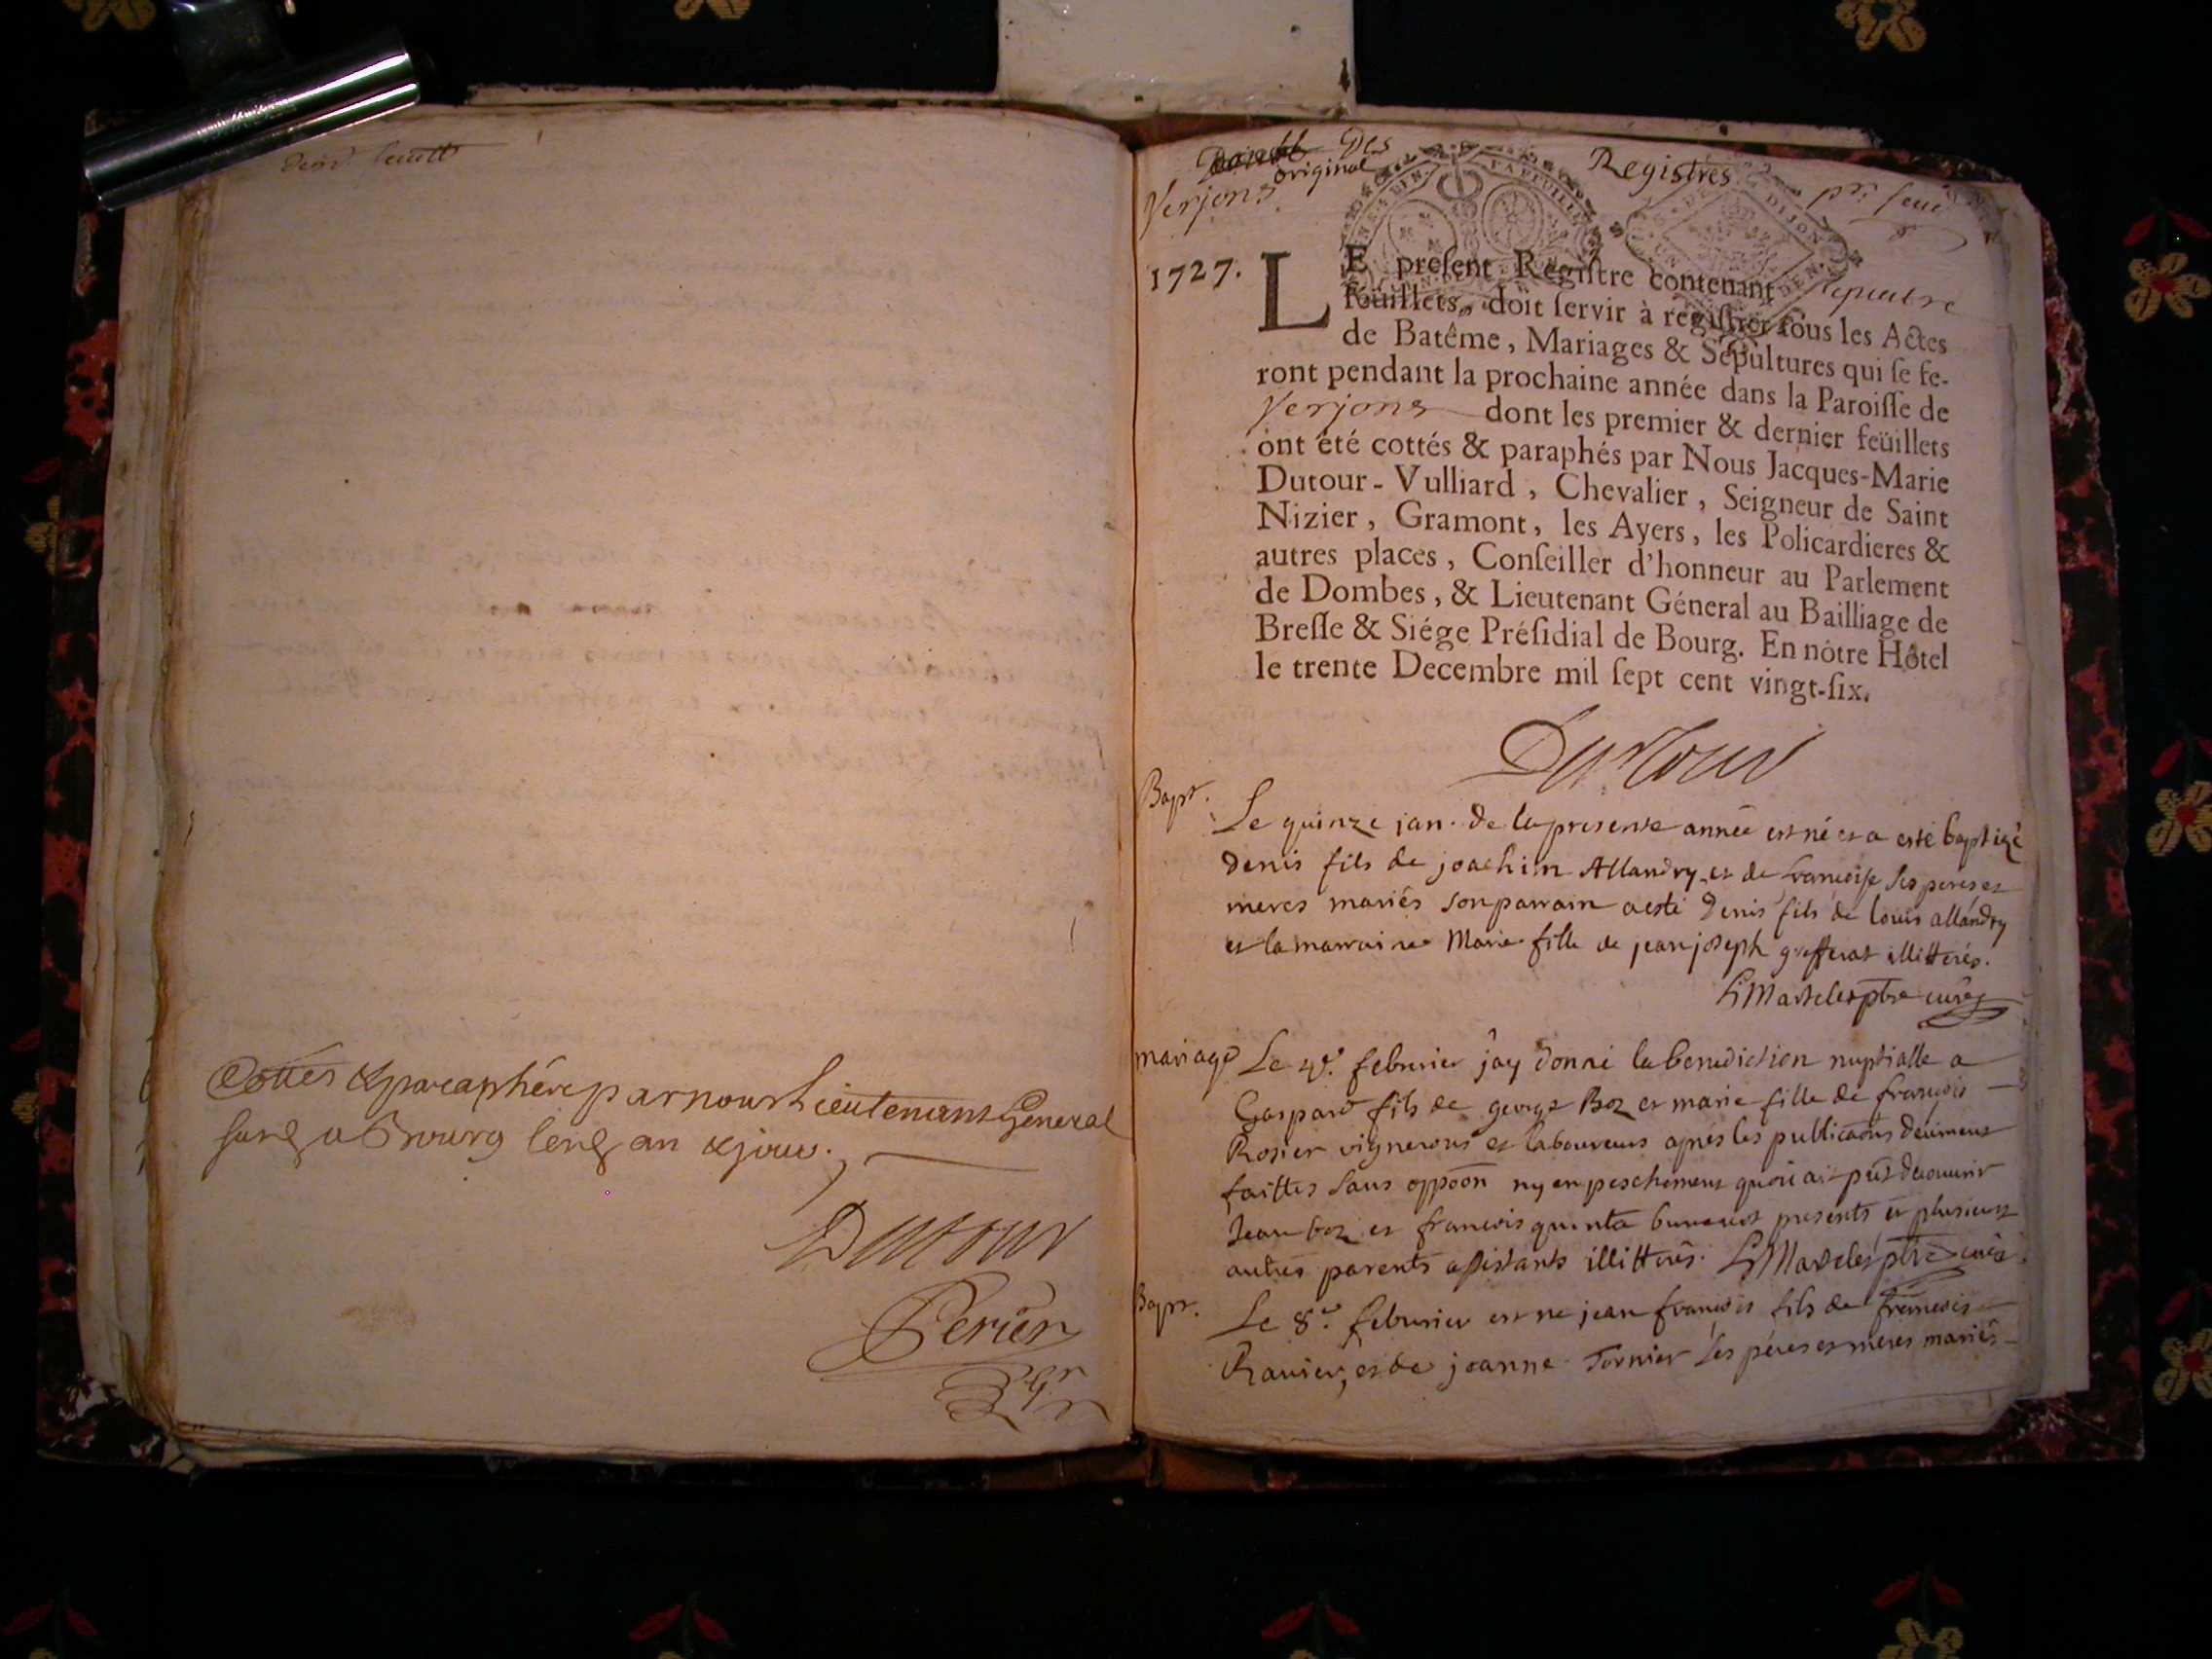 Cottés & paraphéré par nous Lieutenant General
an & jour.
Dutour
Perier
Des
original
Registres
Verjons
1727. LE preſent Regiſtre contenant quatre
feüillets, doit ſervir à regiſtrer tous les Actes
de Batême, Mariages & Sépultures qui ſe fe-
ront pendant la prochaine année dans la Paroiſſe de
Verjons dont les premier & dernier feüillets
ont été cottés & paraphés par Nous Jacques-Marie
Dutour-Vulliard, Chevalier, Seigneur de Saint
Nizier, Gramont, les Ayers, les Policardieres &
autres places, Conſeiller d'honneur au Parlement
de Dombes, & Lieutenant Géneral au Bailliage de
Breſſe & Siége Préſidial de Bourg. En nôtre Hôtel
le trente Decembre mil ſept cent vingt-ſix.
Dutour
Bapt.
Le quinze jan. de la presente année est né et a esté baptizé
Denis fils de joachim Allandry et de francoise ses peres et
meres mariés son parrain a esté Denis fils de louis allandry
et la marraine Marie fille de jean joseph illitterés.
ptre curé
mariage Le febvrier j'ay donné la benediction nuptialle a
Gaspard fils de george Boz et marie fille de françois
Rosier vignerons et laboureurs aprés les publicaons deüment
faittes sans oppoon ny empeschement qu'on ait pût decouvrir
Jean boz et francois presents et plusieurs
autres parents assistants illitterés. ptre curé
Bapt.
Le 8e. febvrier est né jean françois fils de francois
Ravier, et de joanne Tornier ses péres et meres mariés